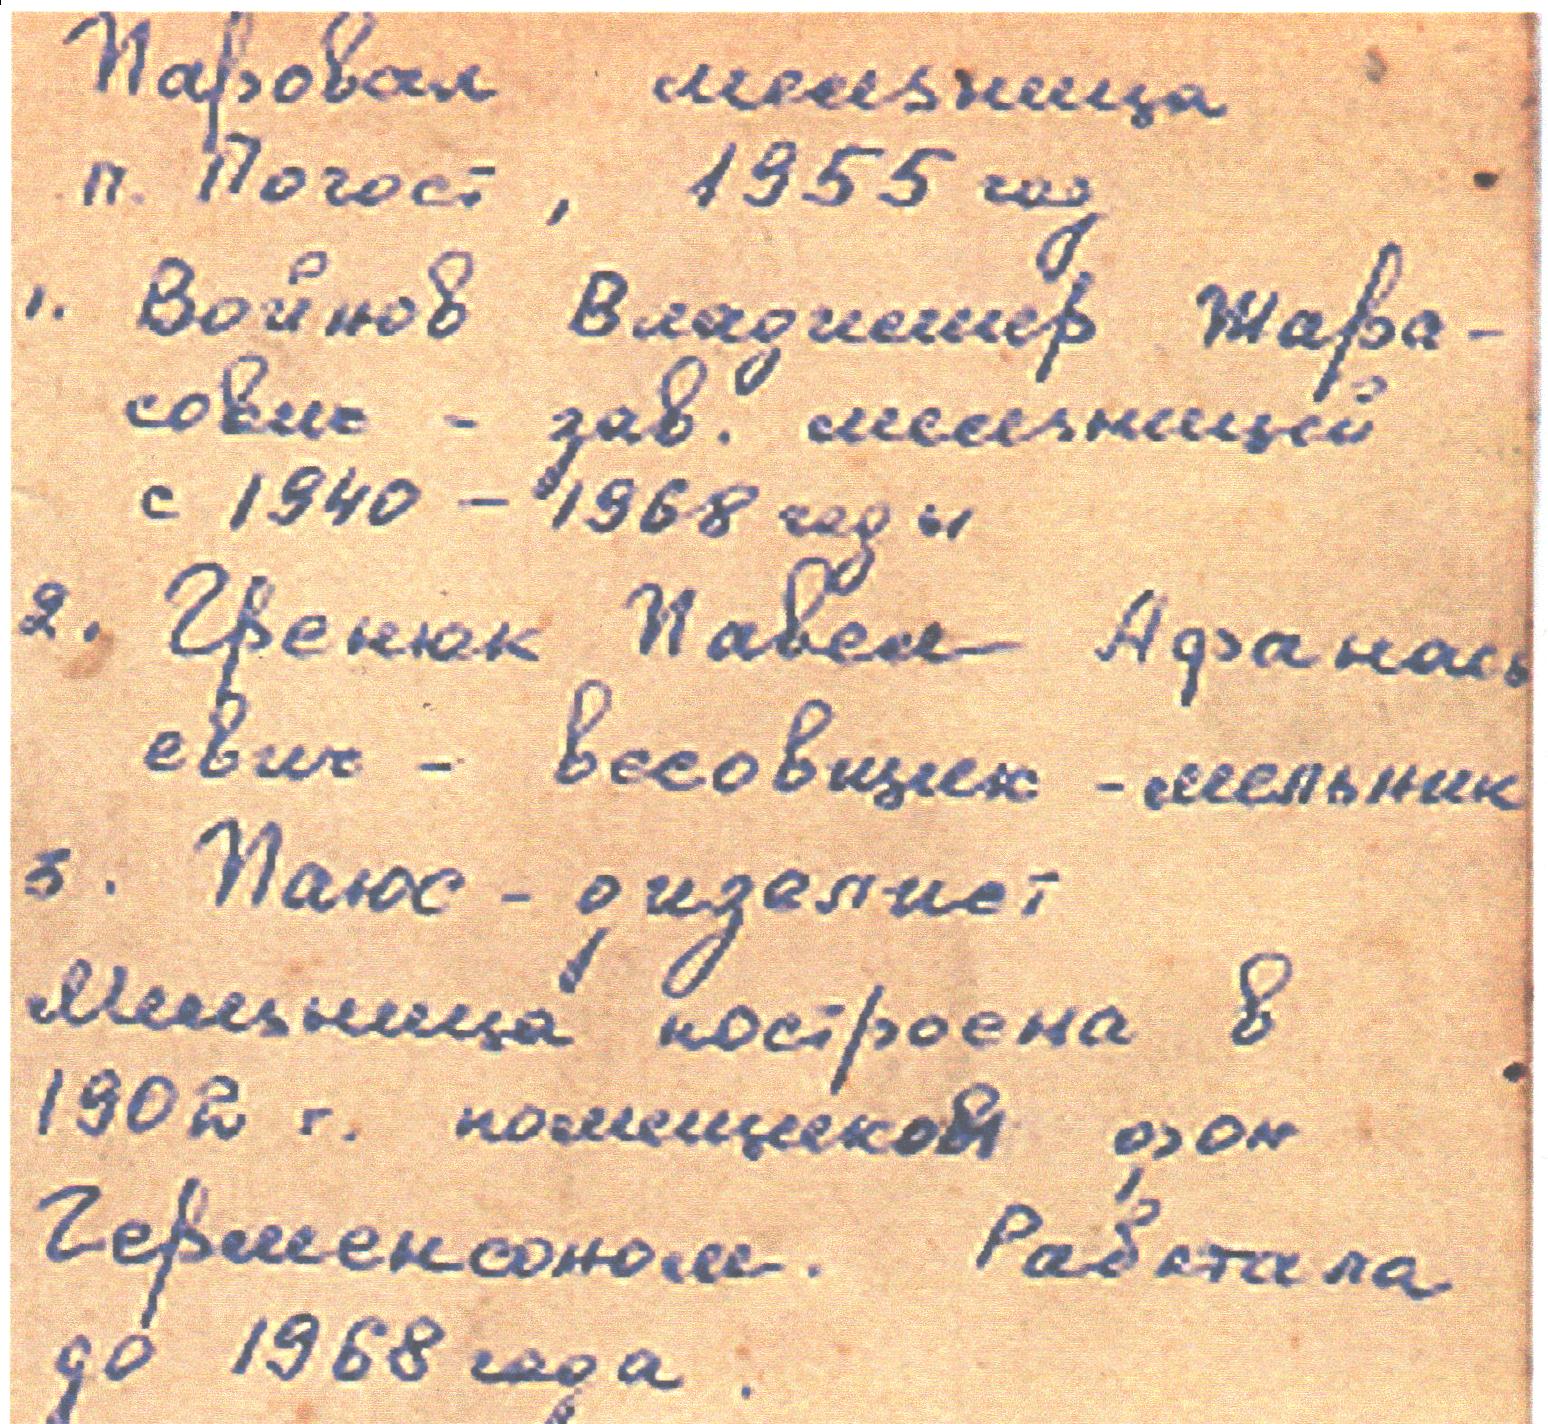 Паровая мельница
п. Погост, 1955 год
1. Войнов Владимир Тара-
сович - зав. мельницей
с 1940 - 1968 годы
2. Гренюк Павел Афанась
евич - весовщик - мельник
3. Паюс - дизелист
Мельница построена в
1902 г. помещиком фон
Герменсоном. Работала
до 1968 года.